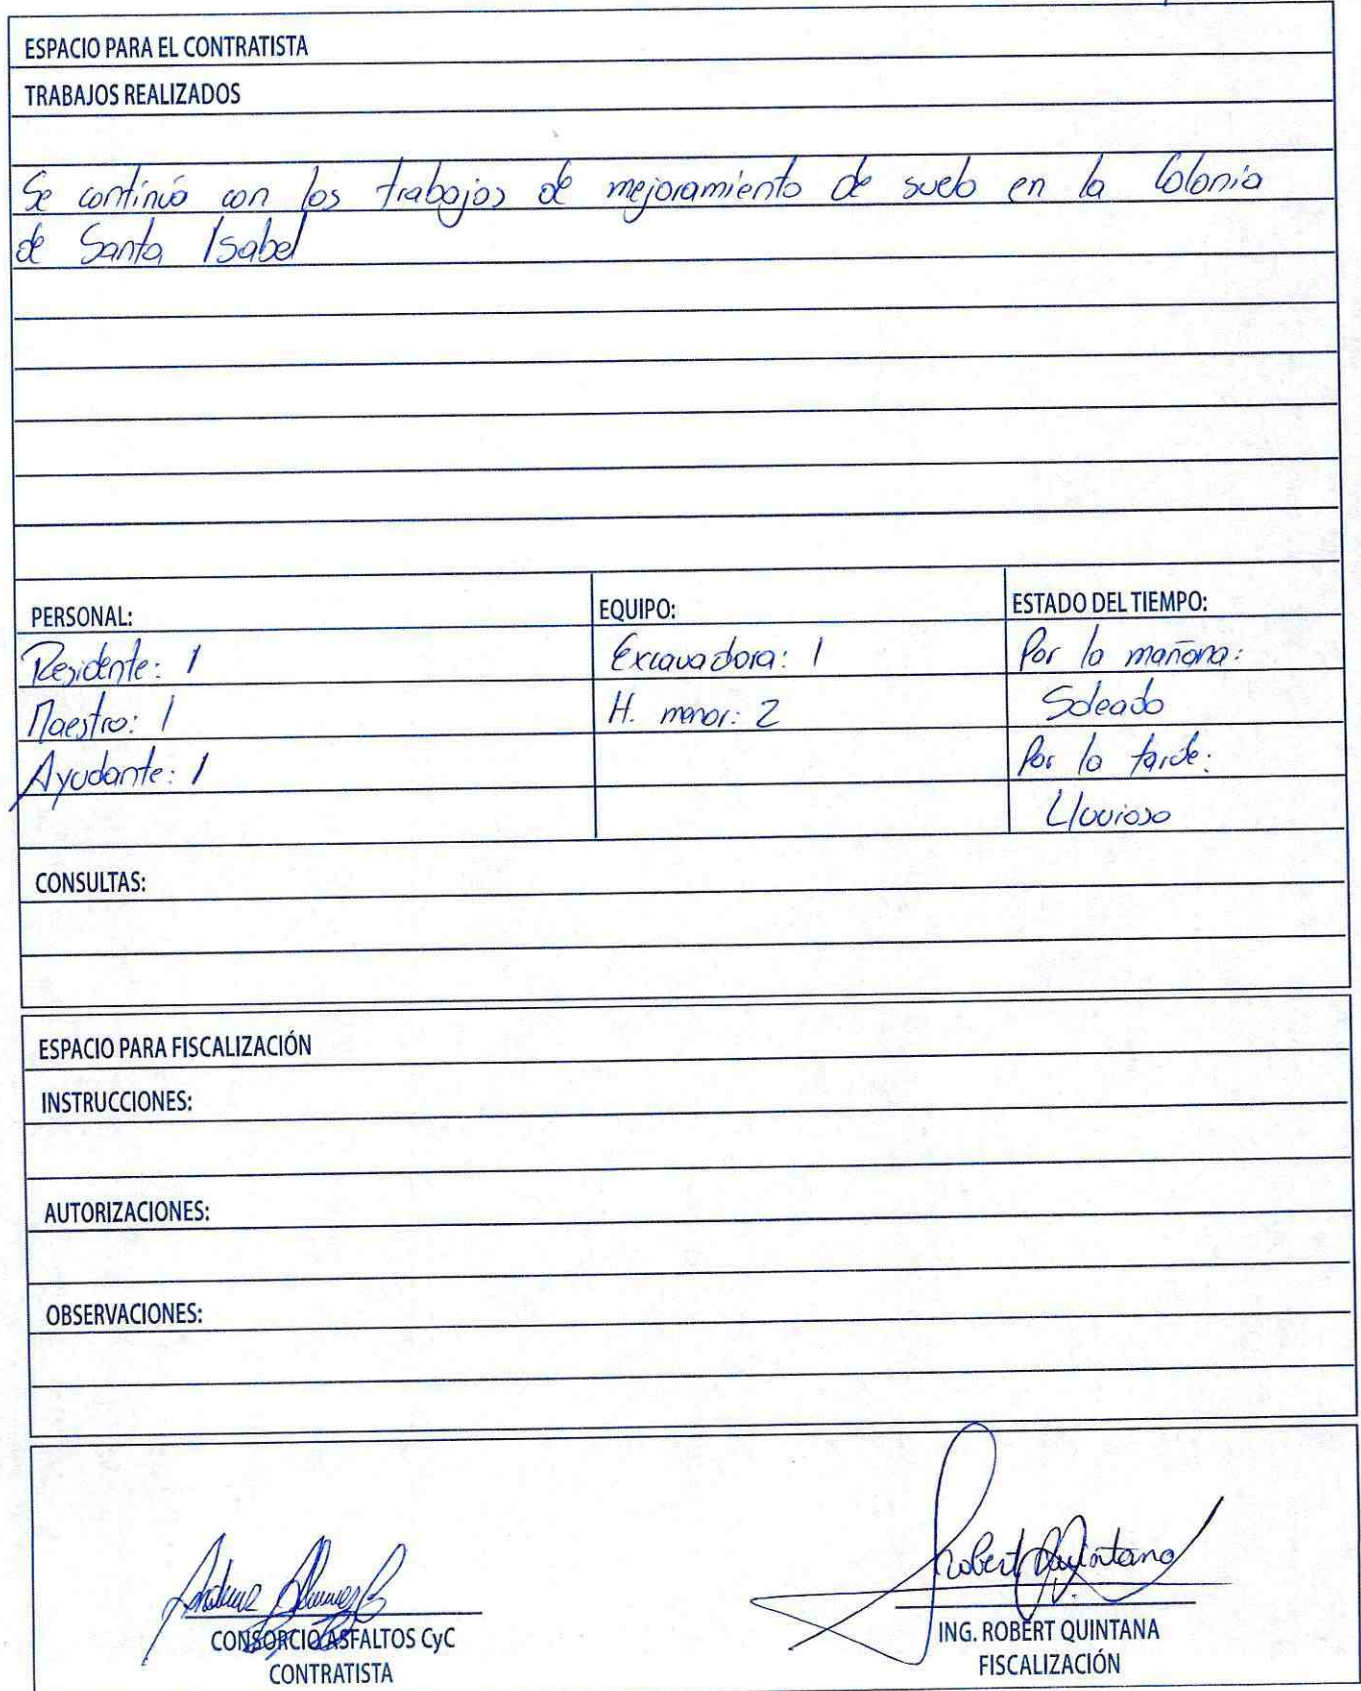 ESPACIO PARA EL CONTRATISTA
TRABAJOS REALIZADOS
Se continúo con los trabajos de mejoramiento de suelo en la Colonia
de Santa Isabel
PERSONAL:
Residente: 1
Maestro: 1
Ayudante: 1
EQUIPO:
Excavadora: 1
H. menor: 2
ESTADO DEL TIEMPO:
Por la mañana:
Soleado
Por la tarde:
Lluvioso
CONSULTAS:
ESPACIO PARA FISCALIZACIÓN
INSTRUCCIONES:
AUTORIZACIONES:
OBSERVACIONES:
CONSORCIO ASFALTOS CyC
CONTRATISTA
Robert Quintana
ING. ROBERT QUINTANA
FISCALIZACIÓN